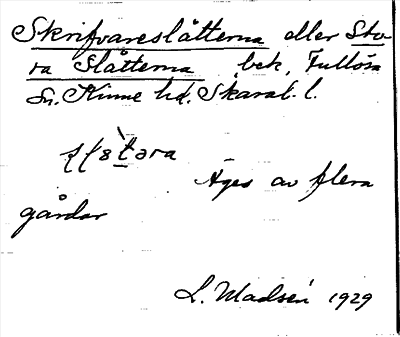 Skrifvareslåtterna eller Sto-
ra Slåtterna bek. Fullösa
sn. Kinne hd. Skarab. l.
Äges av flera
gårdar
L. Madsén 1929